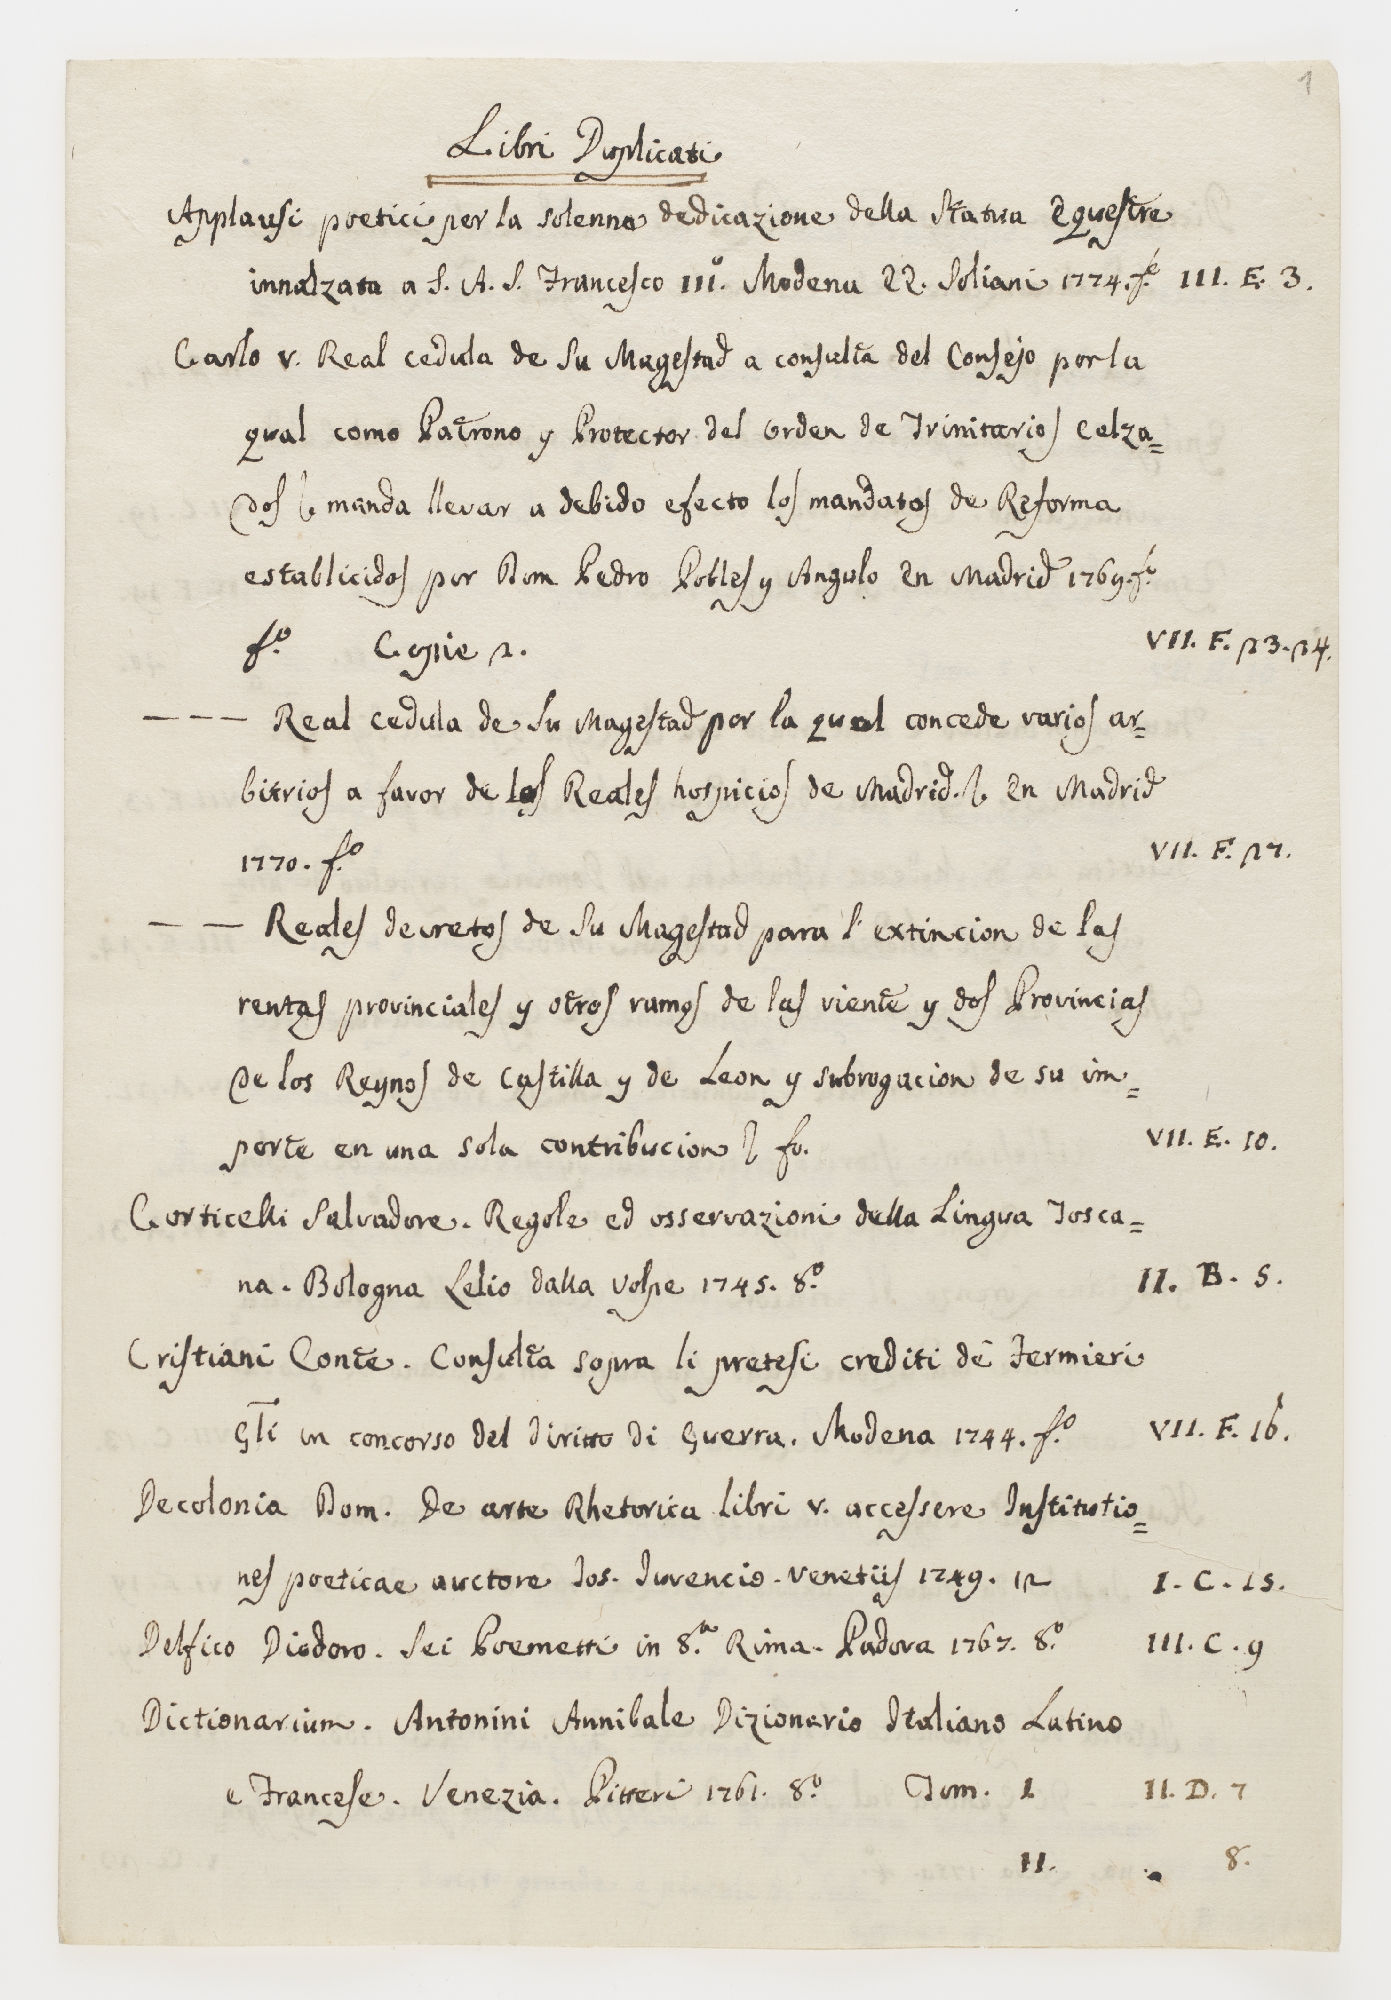 1
Libri Duplicati
Applausi poetici per la solenne dedicazione della Statua Equestre
innalzata a S. A. S. Francesco III.º Modena EE. Soliani 1774. fº III. E. 3.
Carlo V. Real cedula de Su Magestad a consulta del Consejo por la
qual como Patrono y Protector del Orden de Trinitarios Calza=
dos & manda llevar a debido efecto los mandatos de Reforma
establicidos por Dom Pedro Pobles y Angulo En Madrid 1769. fº
fº. Copie 2. VII. F. 23.24.
--- Real cedula de Su Magestad por la qual concede varios ar=
bitrios a favor de los Reales hospicios de Madrid. & En Madrid
1770. fº VII. F. 27.
-- Reales decretos de Su Magestad para l' extincion de las
rentas provinciales y otros ramos de las viente y dos Provincias
de los Reynos de Castilla y de Leon y subrogacion de su im=
porte en una sola contribucion & fo. VII. E. 10.
Corticelli Salvadore. Regole ed osservazioni della Lingua Tosca=
na. Bologna Lelio dalla Volpe 1745. 8º II. B. 5.
Cristiani Conte. Consulta sopra li pretesi crediti de' Fermieri
Gli in concorso del diritto di Guerra. Modena 1744. fº VII. F. 16.
Decolonia Dom. De arte Rhetorica libri V. accessere Institutio=
nes poeticae auctore Jos. Juvencio. Venetiis 1749. 12 I. C. 15.
Delfico Diodoro. Sei Poemetti in 8.ª Rima. Padova 1767. 8º III. C. 9
Dictionarium. Antonini Annibale Dizionario Italiano Latino
e Francese. Venezia. Pitteri 1761. 8º Tom. I II. D. 7
II. . 8.